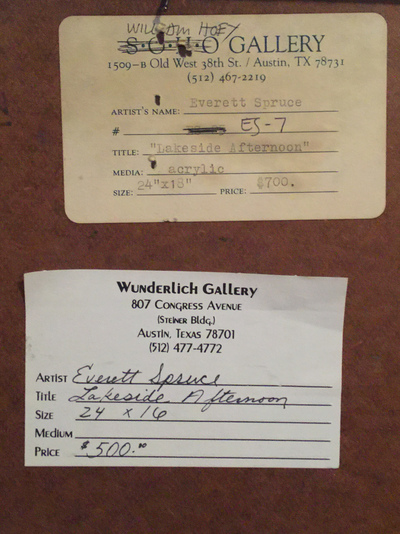 WILLIAM HOEY
S·O·H·O GALLERY
1509-B Old West 38th St. / Austin, TX 78731
(512) 467-2219
ARTIST'S NAME: Everett Spruce
# ES-7
TITLE: "Lakeside Afternoon"
MEDIA: acrylic
SIZE: 24"x18" PRICE: $700.
Wunderlich Gallery
807 Congress Avenue
(Steiner Bldg.)
Austin, Texas 78701
(512) 477-4772
Artist Everett Spruce
Title Lakeside Afternoon
Size 24 x 16
Medium
Price $500.00